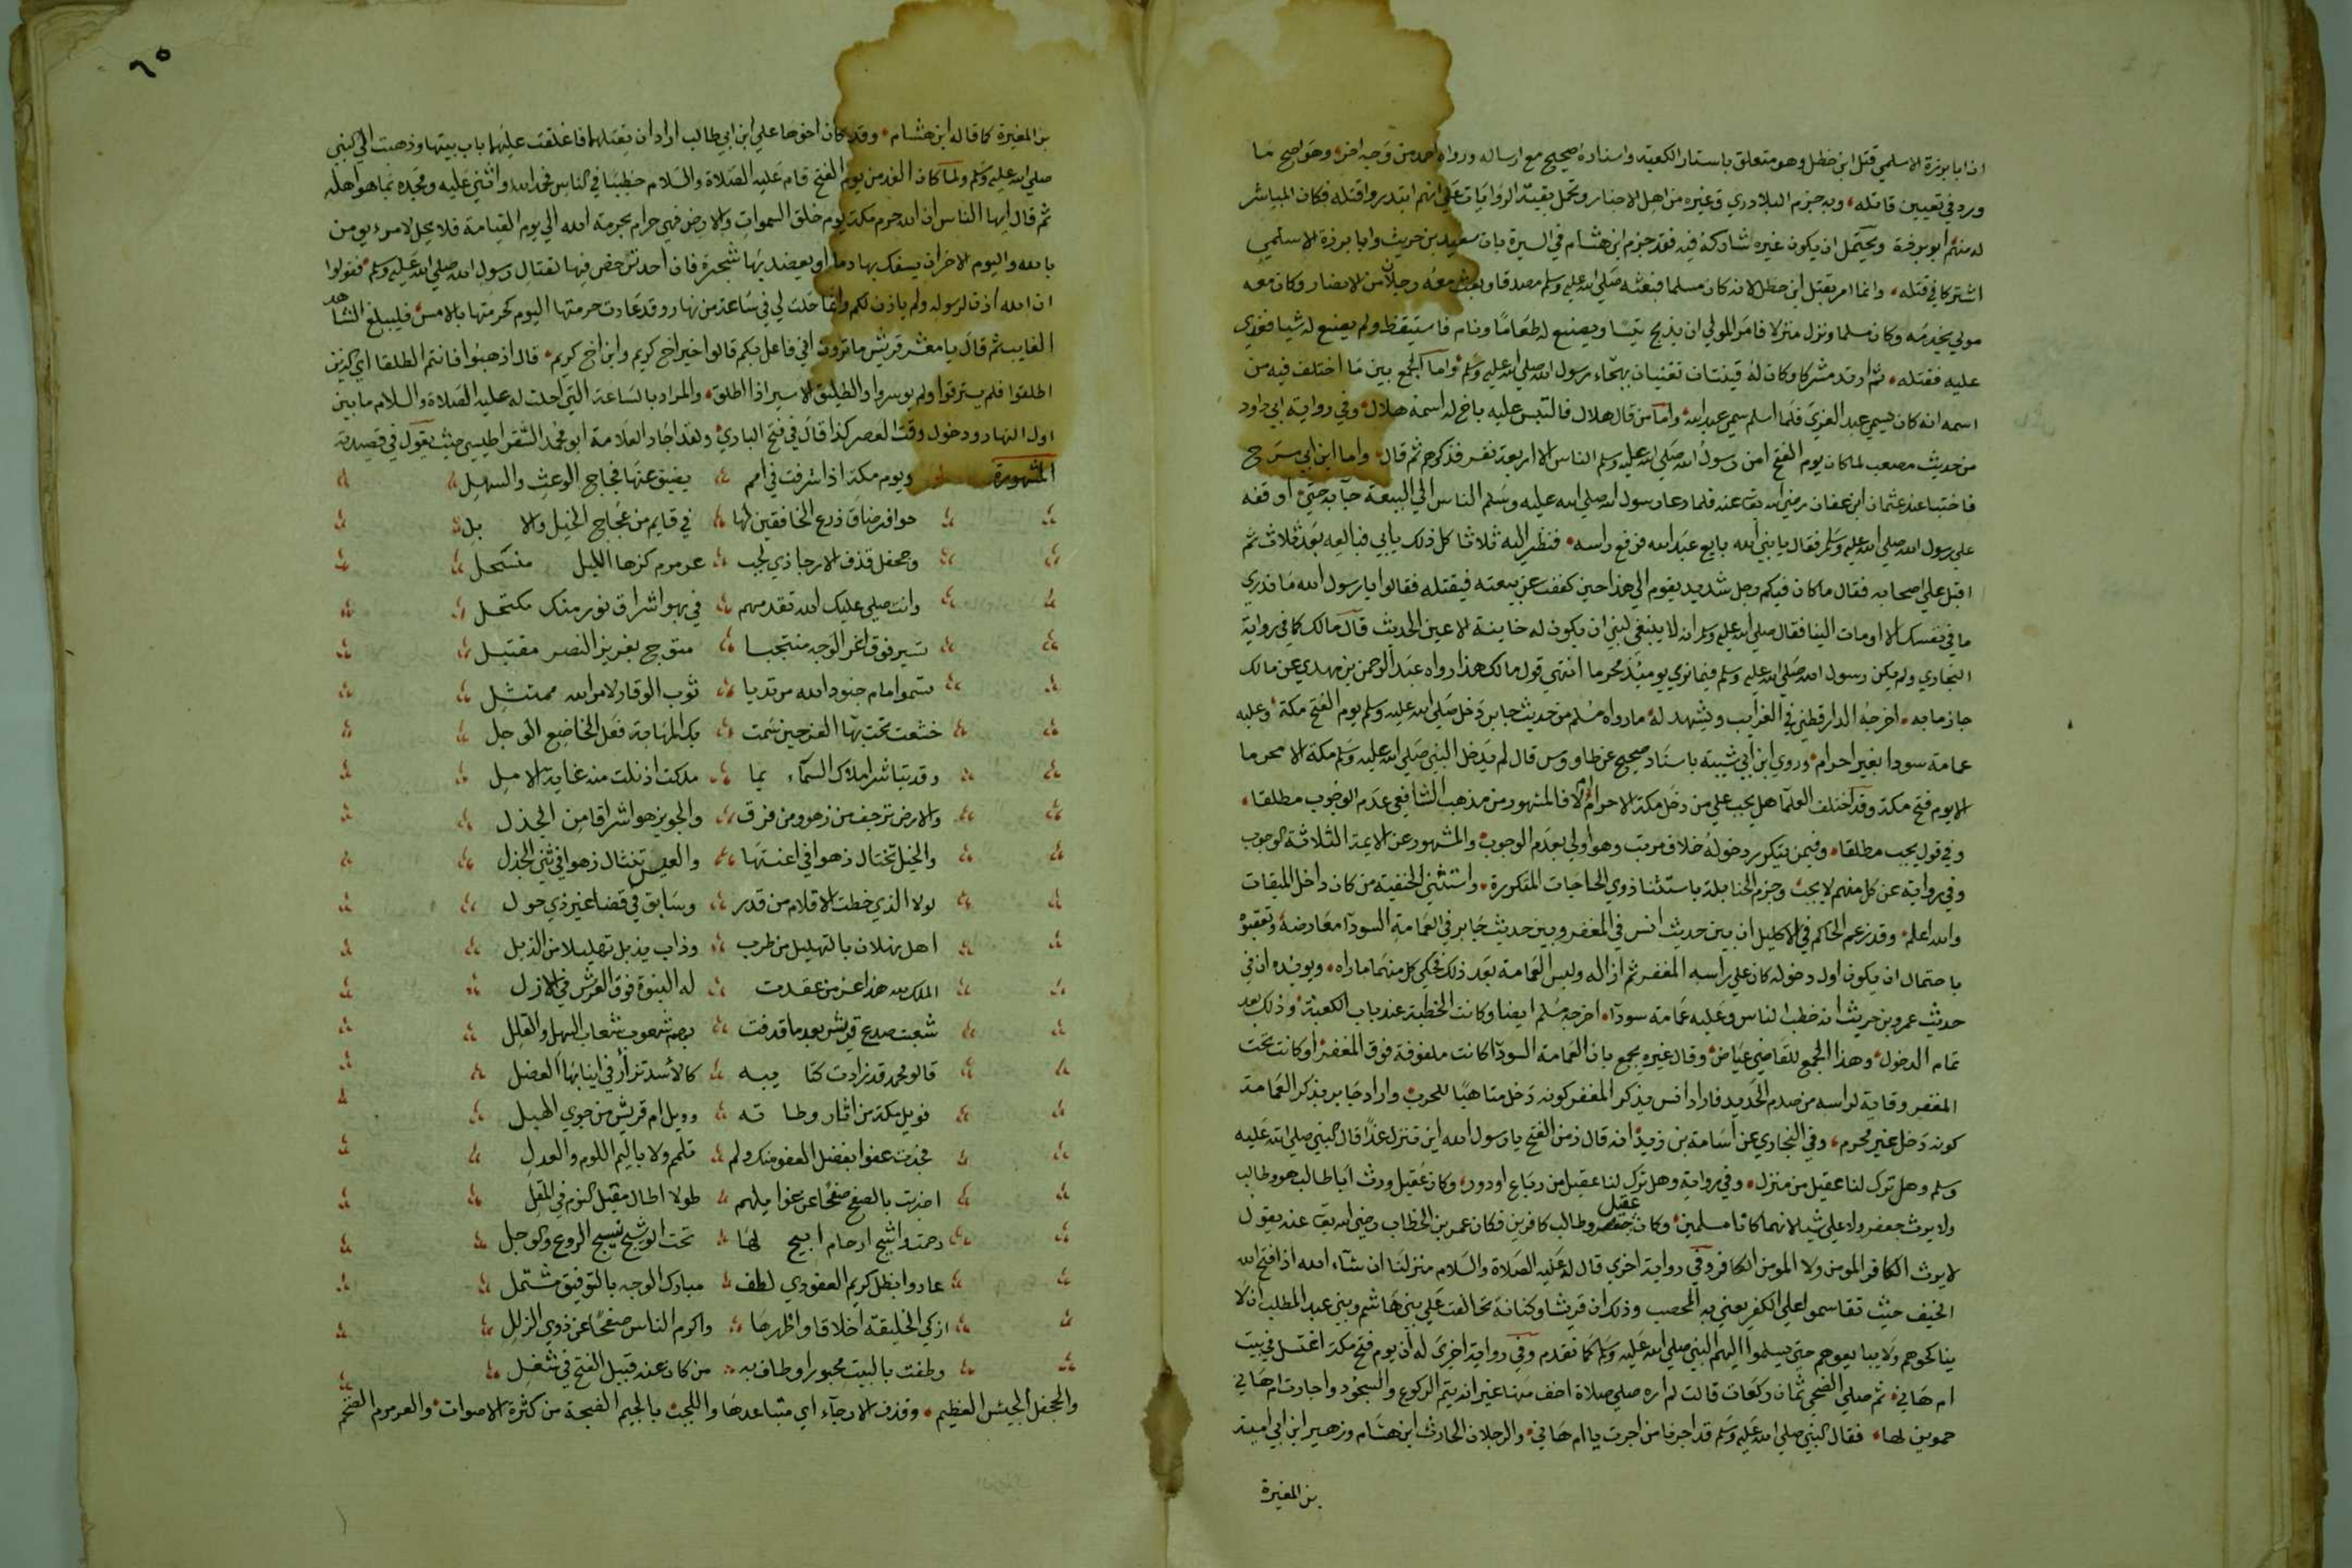 ان ابا برزة الاسلمي قتل ابن خطل وهو متعلق باستار الكعبة واسناده صحيح مع ارساله ورواه احمد من وجه اخر وهو اصح ما
ورد في تعيين قاتله وبه جزم البلاذري وغيره من اهل الاخبار وتحمل بقية الروايات على انهم ابتدروا قتله فكان المباشر
له منهم ابو برزة ويحتمل ان يكون غيره شاركه فيه فقد جزم ابن هشام في السيرة بان سعيد بن حريث وابا برزة الاسلمي
اشتركا في قتله وانما امر بقتل ابن خطل لانه كان مسلما فبعثه صلى الله عليه وسلم مصدقا وبعث معه رجلا من الانصار وكان معه
مولى يخدمه وكان مسلما ونزل منزلا فامر المولى ان يذبح تيسا ويصنع له طعاما ونام فاستيقظ ولم يصنع له شيا فعدي
عليه فقتله ثم ارتد مشركا وكان له قينتان تغنيان بهجاء رسول الله صلى الله عليه وسلم واما الجمع بين ما اختلف فيه من
اسمه انه كان يسمي عبد العزي فلما اسلم سمي عبد الله واما من قال هلال فالتبس عليه باخ له اسمه هلال وفي رواية ابي داود
من حديث مصعب لما كان يوم الفتح امن رسول الله صلى الله عليه وسلم الناس الا اربعة نفر فذكرهم ثم قال واما ابن ابي سرح
فاختبا عند عثمان ابن عفان رضي الله تعالى عنه فلما دعا رسول الله صلى الله عليه وسلم الناس الي البيعة جآ به حتى اوقفه
علي رسول الله صلى الله عليه وسلم فقال يا نبي الله بايع عبد الله فرفع راسه فنظر اليه ثلاثا كل ذلك يابي فبايعه بعد ثلاث ثم
اقبل علي اصحابه فقال ما كان فيكم رجل شديد يقوم الي هذا حين كففت عن بيعته فيقتله فقالوا يا رسول الله ما ندري
ما في نفسك الا اومات الينا فقال صلى الله عليه وسلم انه لا ينبغي لنبي ان يكون له خاينة الاعين الحديث قال مالك كما في رواية
البخاري ولم يكن رسول الله صلى الله عليه وسلم فيما نري يوميذ محرما انتهي قول مالك هذا رواه عبد الرحمن بن مهدي عن مالك
جازما به اخرجه الدارقطني في الغرايب ويشهد له ما رواه مسلم من حديث جابر دخل صلى الله عليه وسلم يوم الفتح مكة وعليه
عمامة سودا بغير احرام وروي ابن ابي شيبة باسناد صحيح عن طاووس قال لم يدخل النبي صلى الله عليه وسلم مكة الا محرما
الا يوم فتح مكة وقد اختلف العلمآ هل يجب علي من دخل مكة الاحرام ام لا فالمشهور من مذهب الشافعي عدم الوجوب مطلقا
وفي قول يجب مطلقا وفيمن يتكرر دخوله خلاف مرتب وهو اولي بعدم الوجوب والمشهور عن الايمة الثلاثة الوجوب
وفي رواية عن كل منهم لا يجب وجزم الحنابلة باستثنا ذوي الحاجات المتكررة واستثني الحنفية من كان داخل الميقات
والله اعلم وقد زعم الحاكم في الاكليل ان بين حديث انس في المغفر وبين حديث جابر في العمامة السودآ معارضة وتعقبوه
باحتمال ان يكون اول دخوله كان علي راسه المغفر ثم ازاله ولبس العمامة بعد ذلك فحكي كل منهما ما راه ويويده ان في
حديث عمرو بن حريث انه خطب الناس وعليه عمامة سودآ اخرجه مسلم ايضا وكانت الخطبة عند باب الكعبة وذلك بعد
تمام الدخول وهذا الجمع للقاضي عياض وقال غيره يجمع بان العمامة السودآ كانت ملفوفة فوق المغفر او كانت تحت
المغفر وقاية لراسه من صدم الحديد فاراد انس بذكر المغفر كونه دخل متاهبا للحرب واراد جابر بذكر العمامة
كونه دخل غير محرم وفي البخاري عن اسامة بن زيد انه قال زمن الفتح يا رسول الله اين تنزل غدا قال النبي صلى الله عليه
وسلم وهل ترك لنا عقيل من منزل وفي رواية وهل ترك لنا عقيل من رباع او دور وكان عقيل ورث ابا طالب هو وطالب
ولا يرث جعفر ولا علي شيا لانهما كانا مسلمين وكان عقيل وطالب كافرين فكان عمر بن الخطاب رضي الله تعالى عنه يقول
لا يرث الكافر المومن ولا المومن الكافر وفي رواية اخري قال له عليه الصلاة والسلام منزلنا ان شآء الله اذا فتح الله
الخيف حيث تقاسموا علي الكفر يعني به المحصب وذلك ان قريشا وكنانة تحالفت علي بني هاشم وبني عبد المطلب ان لا
يناكحوهم ولا يبايعوهم حتي يسلموا اليهم النبي صلى الله عليه وسلم كما تقدم وفي رواية اخري له ان يوم فتح مكة اغتسل في بيت
ام هاني ثم صلي الضحي ثمان ركعات قالت لم اره صلي صلاة اخف منها غير انه يتم الركوع والسجود واجارت ام هاني
حموين لها فقال النبي صلى الله عليه وسلم قد اجرنا من اجرت يا ام هاني والرجلان الحارث ابن هشام وزهير ابن ابي امية
بن المغيرة
٦٥
بن المغيرة كما قاله ابن هشام وقد كان اخوها علي ابن ابي طالب اراد ان يقتلهما فاغلقت عليهما باب بيتها وذهبت الي النبي
صلى الله عليه وسلم ولما كان الغد من يوم الفتح قام عليه الصلاة والسلام خطيبا في الناس فحمد الله واثني عليه ومجده بما هو اهله
ثم قال ايها الناس ان الله حرم مكة يوم خلق السموات والارض فهي حرام بحرمة الله الي يوم القيامة فلا يحل لامرء يومن
بالله واليوم الاخر ان يسفك بها دما او يعضد بها شجرة فان احد ترخص فيها لقتال رسول الله صلى الله عليه وسلم فقولوا
ان الله اذن لرسوله ولم ياذن لكم وانما حلت لي في ساعة من نهار وقد عادت حرمتها اليوم كحرمتها بالامس فليبلغ الشاهد
الغايب ثم قال يا معشر قريش ما ترون اني فاعل فيكم قالوا خيرا اخ كريم وابن اخ كريم قال اذهبوا فانتم الطلقا اي الذين
اطلقوا فلم يسترقوا ولم يوسروا والطليق الاسير اذا اطلق والمراد بالساعة التي احلت له عليه الصلاة والسلام ما بين
اول النهار ودخول وقت العصر كذا قال في فتح الباري ولقد اجاد العلامة ابو محمد الشقراطيسي حيث يقول في قصيدته
المشهورة ويوم مكة اذ اشرفت في امم يضيق عنها فجاج الوعث والسهل
خوافر ضاق ذرع الخافقين لها في قايم من عجاج الخيل والا بل
وجحفل قذف الارجا ذي لجب عرمرم كزها الليل منسحل
وانت صلي عليك الله تقدمهم في بهو اشراق نور منك مكتمل
تسير فوق اغر الوجه منتجبا متوج بعزيز النصر مقتبل
تسموا امام جنود الله مرتديا ثوب الوقار لامر الله ممتثل
خشعت تحت بهآ العز حين سمت بك المهابة فعل الخاضع الوجل
وقد تباشر املاك السمآء بما ملكت اذ نلت منه غاية الامل
والارض ترجف من زهو ومن فرق والجو يزهو اشراقا من الجذل
والخيل تختال زهوا في اعنتها والعيس تنثال زهوا في ثني الجذل
لولا الذي خطت الاقلام من قدر وسابق في قضا غير ذي حول
اهل ثهلان بالتهليل من طرب وذاب يذبل تهليلا من الذبل
الملك لله هذا عز من عقدت له النبوة فوق العرش في الازل
شعبت صدع قريش بعد ما قذفت بهم شعوب شعاب السهل والقلل
قالو محمد قد زادت كتا يبه كالأسد تزأر في انيابها العضل
فويل مكة من اثار وطا ته وويل ام قريش من جوي الهبل
فجدت عفوا بفضل العفو منك ولم تلمم ولا باليم اللوم والعدل
اضربت بالصفح صفحا عن غوايلهم طولا اطال مقيل النوم في المقل
رحمت واشج ارحام اتيح لها تحت الوشيج نشيج الروع والوجل
عادوا بظل كريم العفو ذي لطف مبارك الوجه بالتوفيق مشتمل
ازكي الخليقة اخلاقا واطهرها واكرم الناس صفحا عن ذوي الزلل
وطفت بالبيت محبورا وطاف به من كان عنه قبيل الفتح في شغل
والجحفل الجيش العظيم وقذف الارجآء اي متباعدها واللجب بالجيم الضجة من كثرة الاصوات والعرمرم الضخم